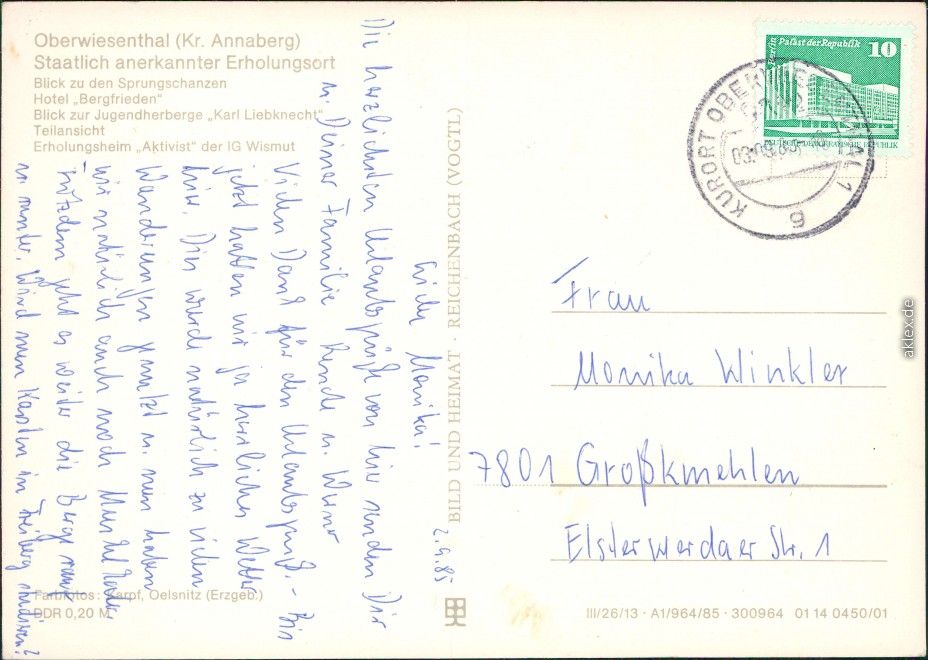 Oberwiesenthal (Kr. Annaberg)
Staatlich anerkannter Erholungsort
Blick zu den Sprungschanzen
Hotel „Bergfrieden“
Blick zur Jugendherberge „Karl Liebknecht“
Teilansicht
Erholungsheim „Aktivist“ der IG Wismut
2.9.85
Liebe Monika!
Die herzlichsten Urlaubsgrüße von hier senden Dir
u. Deiner Familie Renate u. Werner
Vielen Dank für den Urlaubsgruß. – Bis
jetzt hatten wir ja herrliches Wetter
hier. Dies wurde natürlich zu vielen
Wanderungen genutzt u. nun haben
wir natürlich auch noch Muskelkater
Trotzdem geht es weiter die Berge rauf
u. runter. Wird nun Karsten in Freiberg studieren?
Farbfotos: Karpf, Oelsnitz (Erzgeb.)
DDR 0,20 M
BILD UND HEIMAT · REICHENBACH (VOGTL)
Berlin
Palast der Republik
10
DEUTSCHE DEMOKRATISCHE REPUBLIK
KURORT OBERWIESENTHAL 1
03.09.85
g
Frau
Monika Winkler
7801 Großkmehlen
Elsterwerdaer Str. 1
III/26/13 · A1/964/85 · 300964 01 14 0450/01
aklex.de